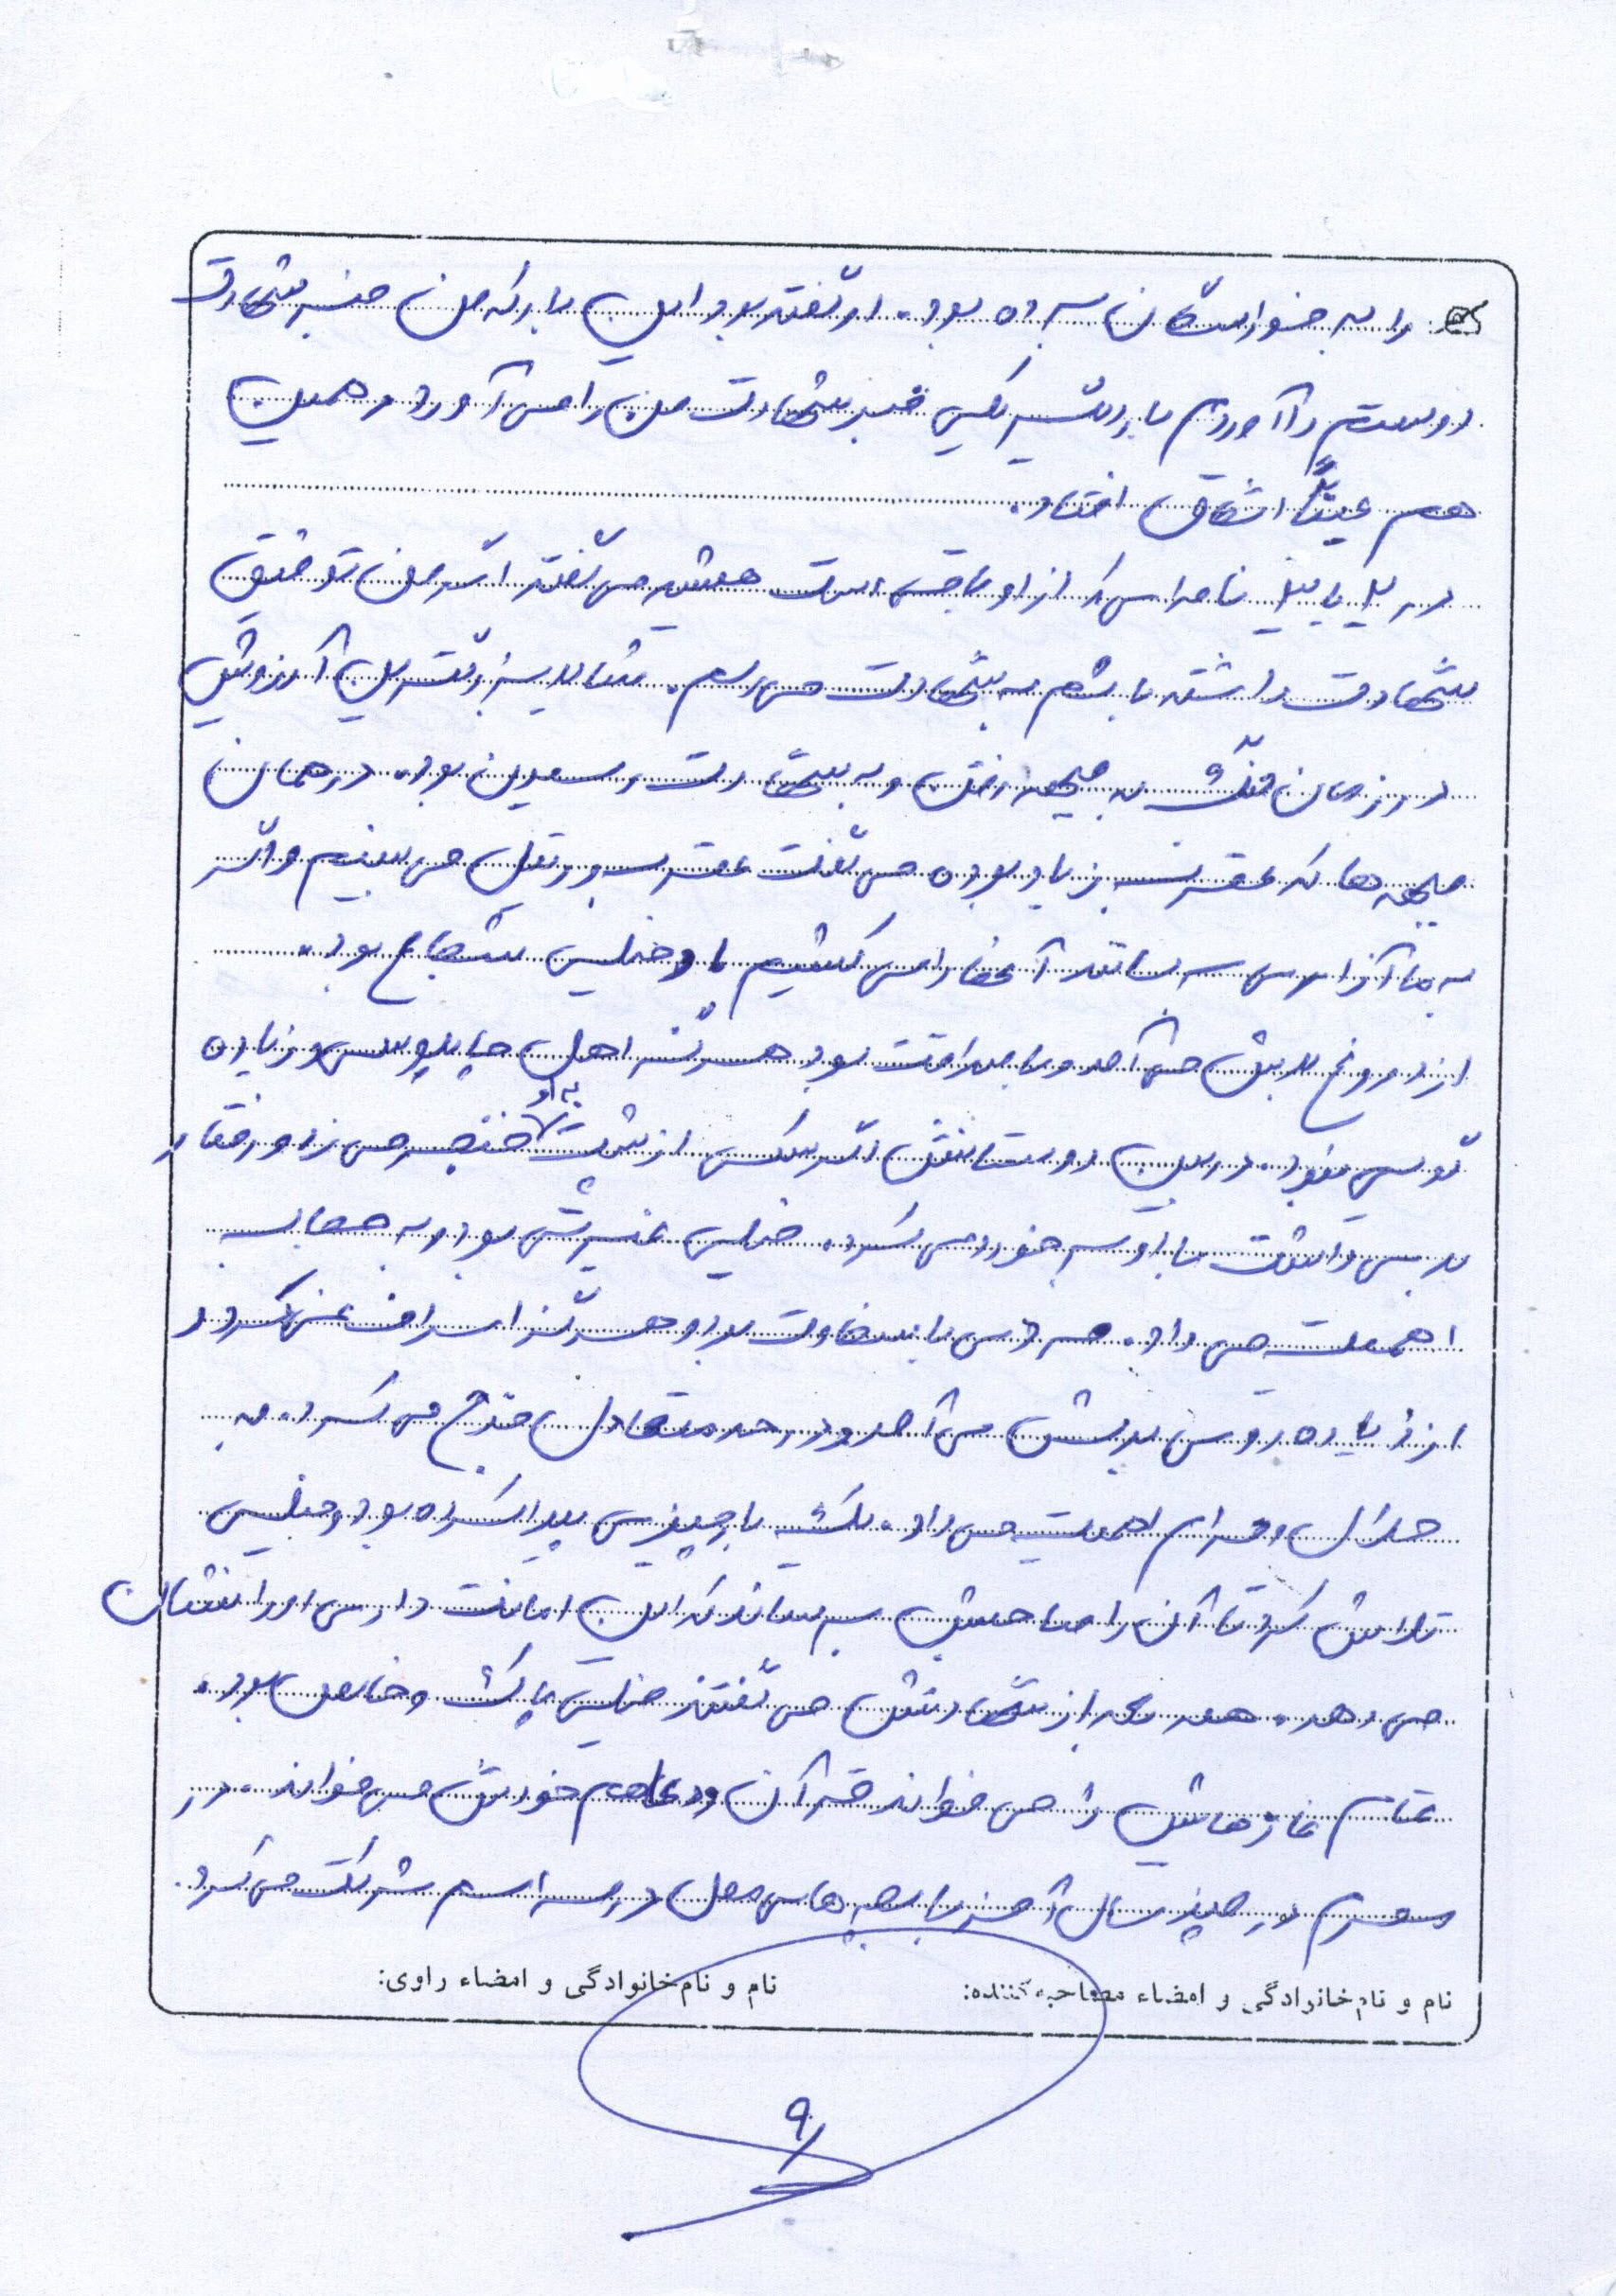 را به خواستگان سپرده بود. او گفته بود این بار که من خبر شهادت
دوستم را آوردم بار دیگر یکی خبر شهادت من را می آورد و همین
هم عیناً اتفاق افتاد.
در یکی نامه اس که از او باقی است همیشه می گفته اگر من توفیق
شهادت داشته باشم به شهادت می رسم. شاید بزرگترین آرزوش
در زمان جنگ به جبهه رفتن و به شهادت رسیدن بود. در همان
جبهه ها که عقرب زیاد بوده می گفت عقرب و رتیل می بینیم و اگر
به ما آزار می رسانند آنها را می کشیم او خیلی شجاع بود.
از دروغ بدش می آمد و با صداقت بود هرگز اهل چاپلوسی و زیاده
گویی نبود. در بین دوستانش اگر یکی از پشت به او خنجر می زد و رفتار
بدی داشت با او برخورد می کرد. خیلی غیرتی بود و به حجاب
اهمیت می داد. مردی با سخاوت بود و هرگز اسراف نمی کرد و
از زیاده روی بدش می آمد و در حد متعادل خرج می کرد. به
حلال و حرام اهمیت می داد. یک بار چیزی پیدا کرده بود و خیلی
تلاش کرد تا آن را صاحبش برساند که این امانت داری او را نشان
می دهد. همه بعد از شهادتش می گفتند خیلی پاک و خالص بود.
تمام نمازهایش را می خواند قرآن و دعا هم خودش می خواند. در
محرم در چند سال آخر با بچه های محل در مراسم شرکت می کرد.
نام و نام‌خانوادگی و امضاء مصاحبه‌کننده: نام و نام‌خانوادگی و امضاء راوی:
۹